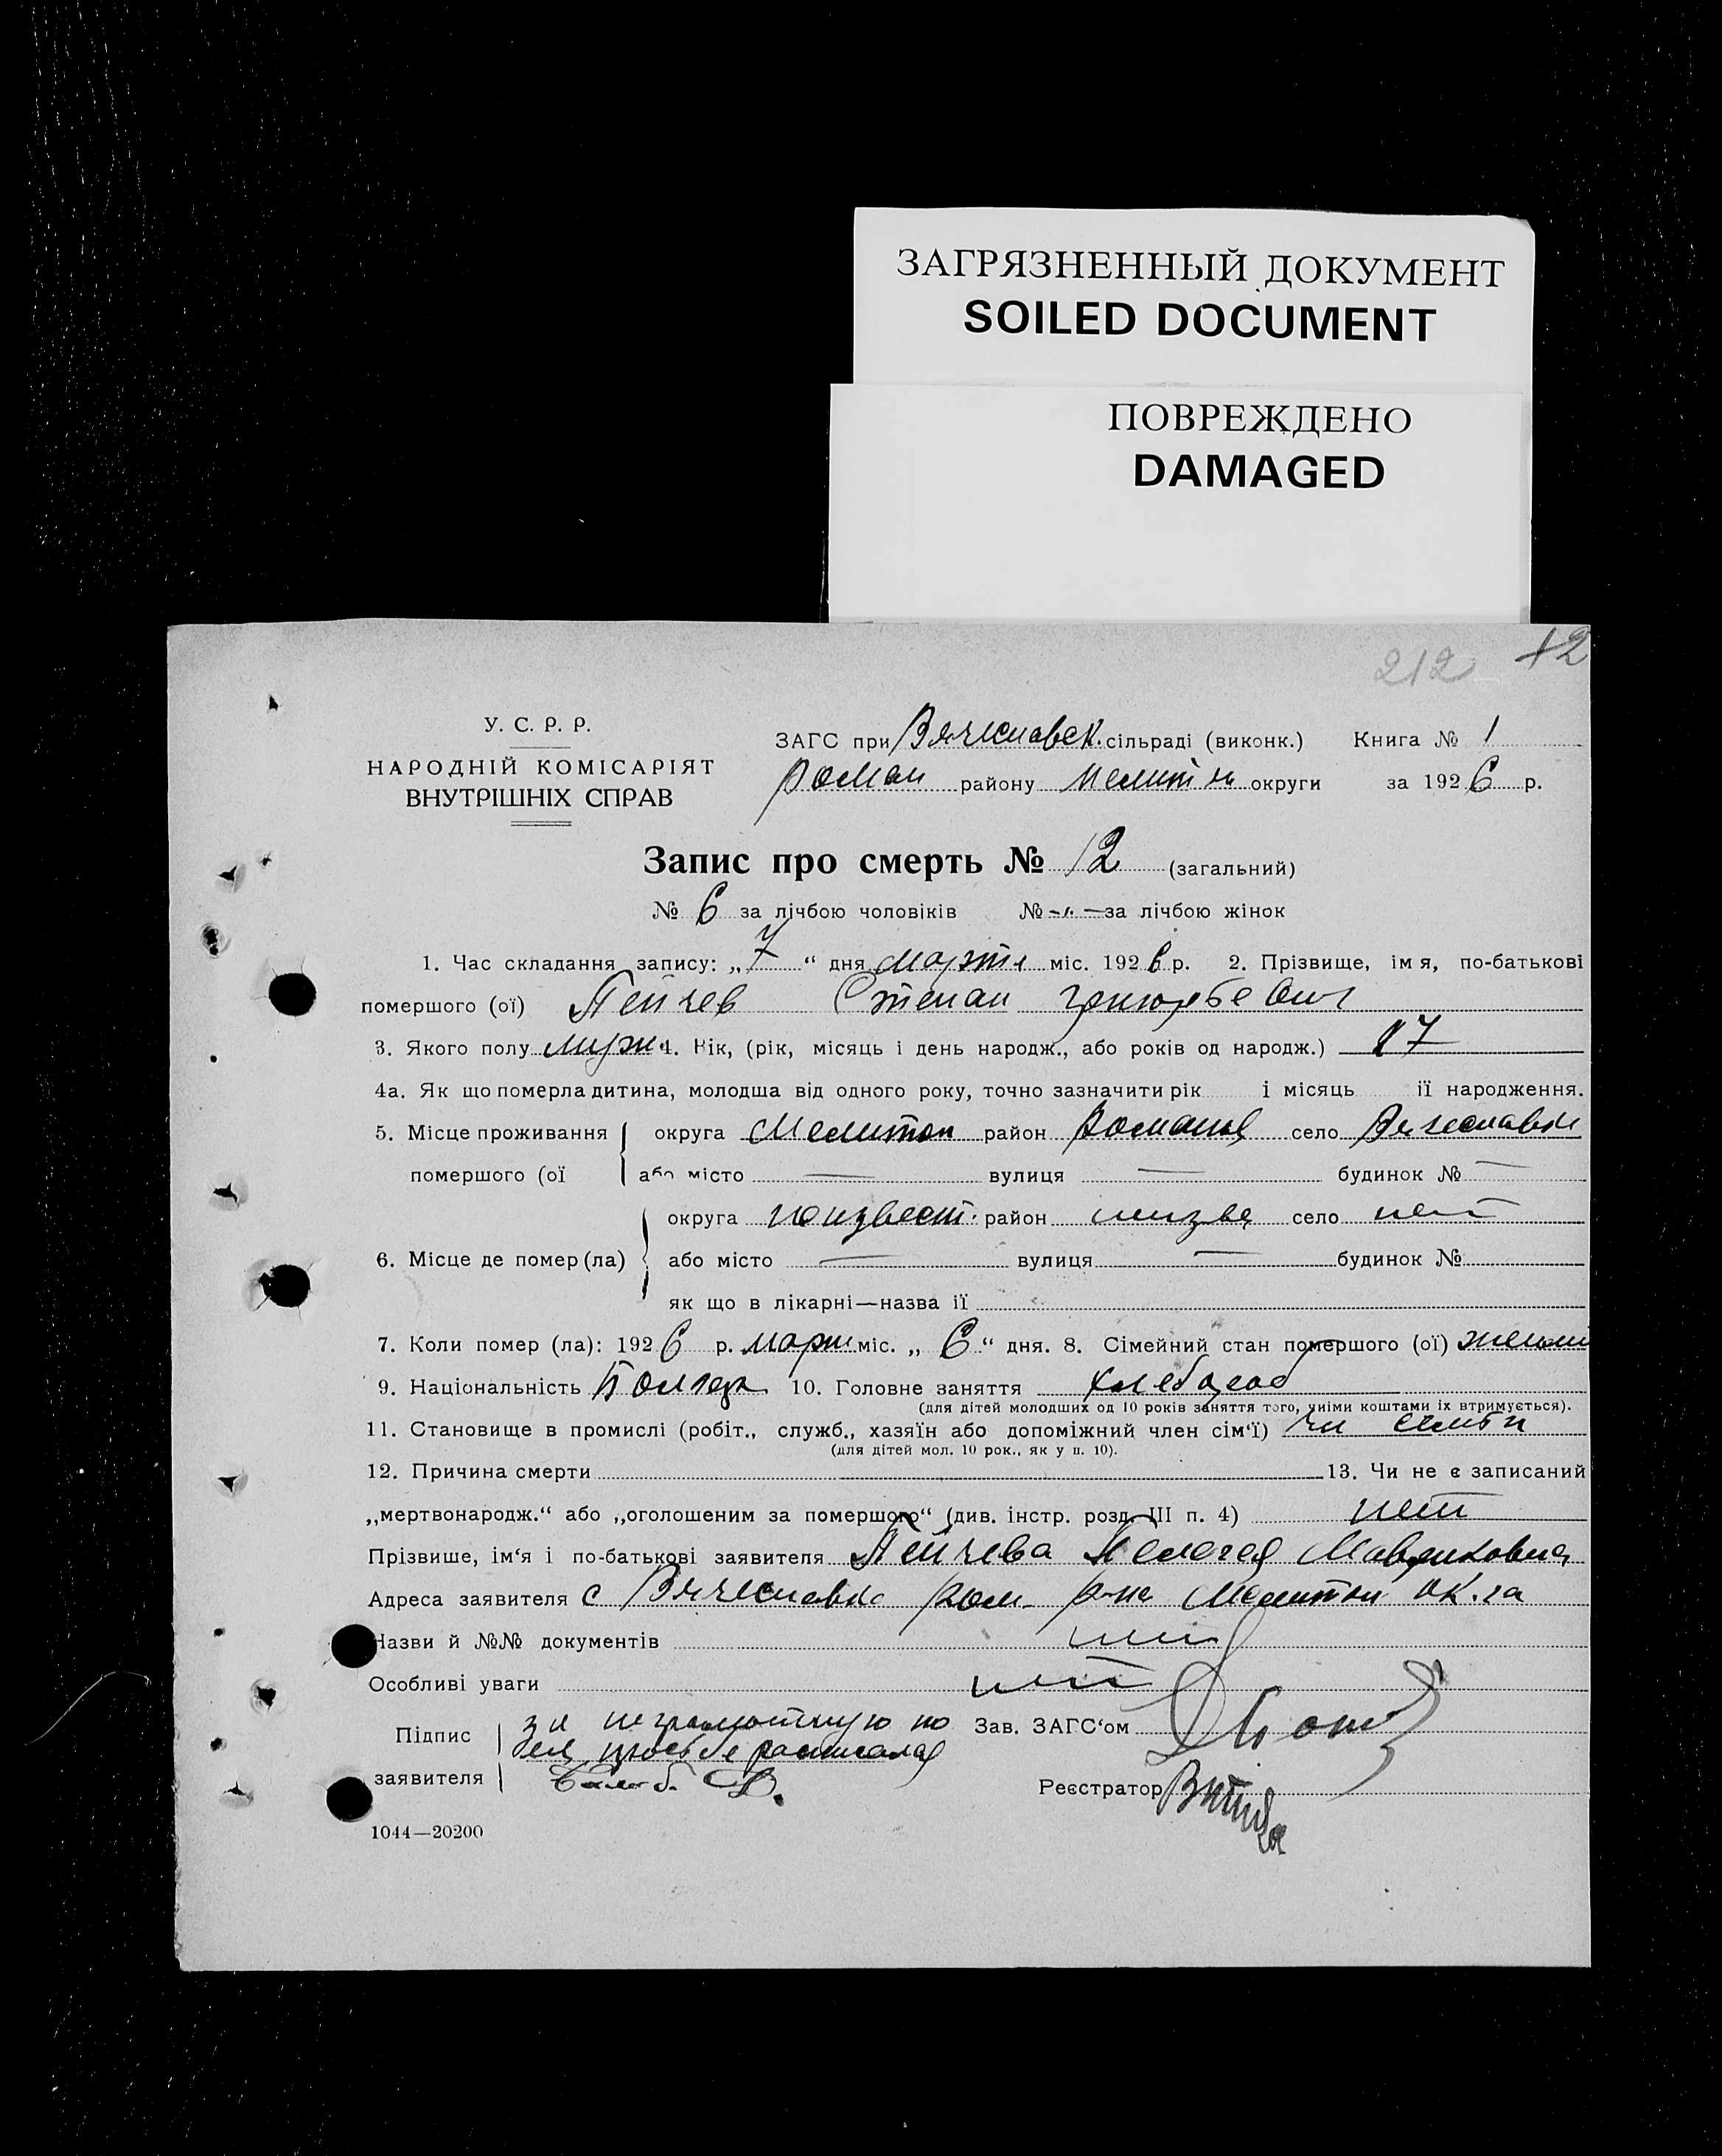 ЗАГРЯЗНЕННЫЙ ДОКУМЕНТ
SOILED DOCUMENT
ПОВРЕЖДЕНО
DAMAGED
212 12
У. С. Р. Р.
НАРОДНІЙ КОМІСАРІЯТ
ВНУТРІШНІХ СПРАВ
ЗАГС при Вячеславск. сільраді (виконк.) Книга № 1
Роман району Мелит округи за 1926 р.
Запис про смерть № 12 (загальний)
№ 6 за лічбою чоловіків № — за лічбою жінок
1. Час складання запису: „7“ дня марта міс. 1926 р. 2. Прізвище, імя, по-батькові
помершого (ої) Пейчев Степан
3. Якого полу муж 4. Вік, (рік, місяць і день народж., або років од народж.) 17
4а. Як що померла дитина, молодша від одного року, точно зазначити рік і місяць ії народження.
5. Місце проживання округа Мелитоп район Романов село Вячеславка
помершого (ої або місто — вулиця — будинок № —
округа неизвест. район неизве село нет
6. Місце де помер (ла) або місто — вулиця — будинок №
як що в лікарні—назва ії
7. Коли помер (ла): 1926 р. март міс. „6“ дня. 8. Сімейний стан помершого (ої)
9. Національність Болгар 10. Головне заняття хлебороб
(для дітей молодших од 10 років заняття того, чиїми коштами їх втримується).
11. Становище в промислі (робіт., служб., хазяїн або допоміжний член сім'ї) чл семьи
(для дітей мол. 10 рок., як у п. 10).
12. Причина смерти 13. Чи не є записаний
„мертвонародж.“ або „оголошеним за помершого“ (див. інстр. розд. III п. 4) нет
Прізвише, ім'я і по-батькові заявителя Пейчева Пелагея
Адреса заявителя с Вячеславка Ром. р-на Мелитоп ок.га
Назви й №№ документів нет
Особливі уваги нет
Підпис за неграмотную по Зав. ЗАГС'ом
ея просьбе расписалас
заявителя
Реєстратор
1044—20200